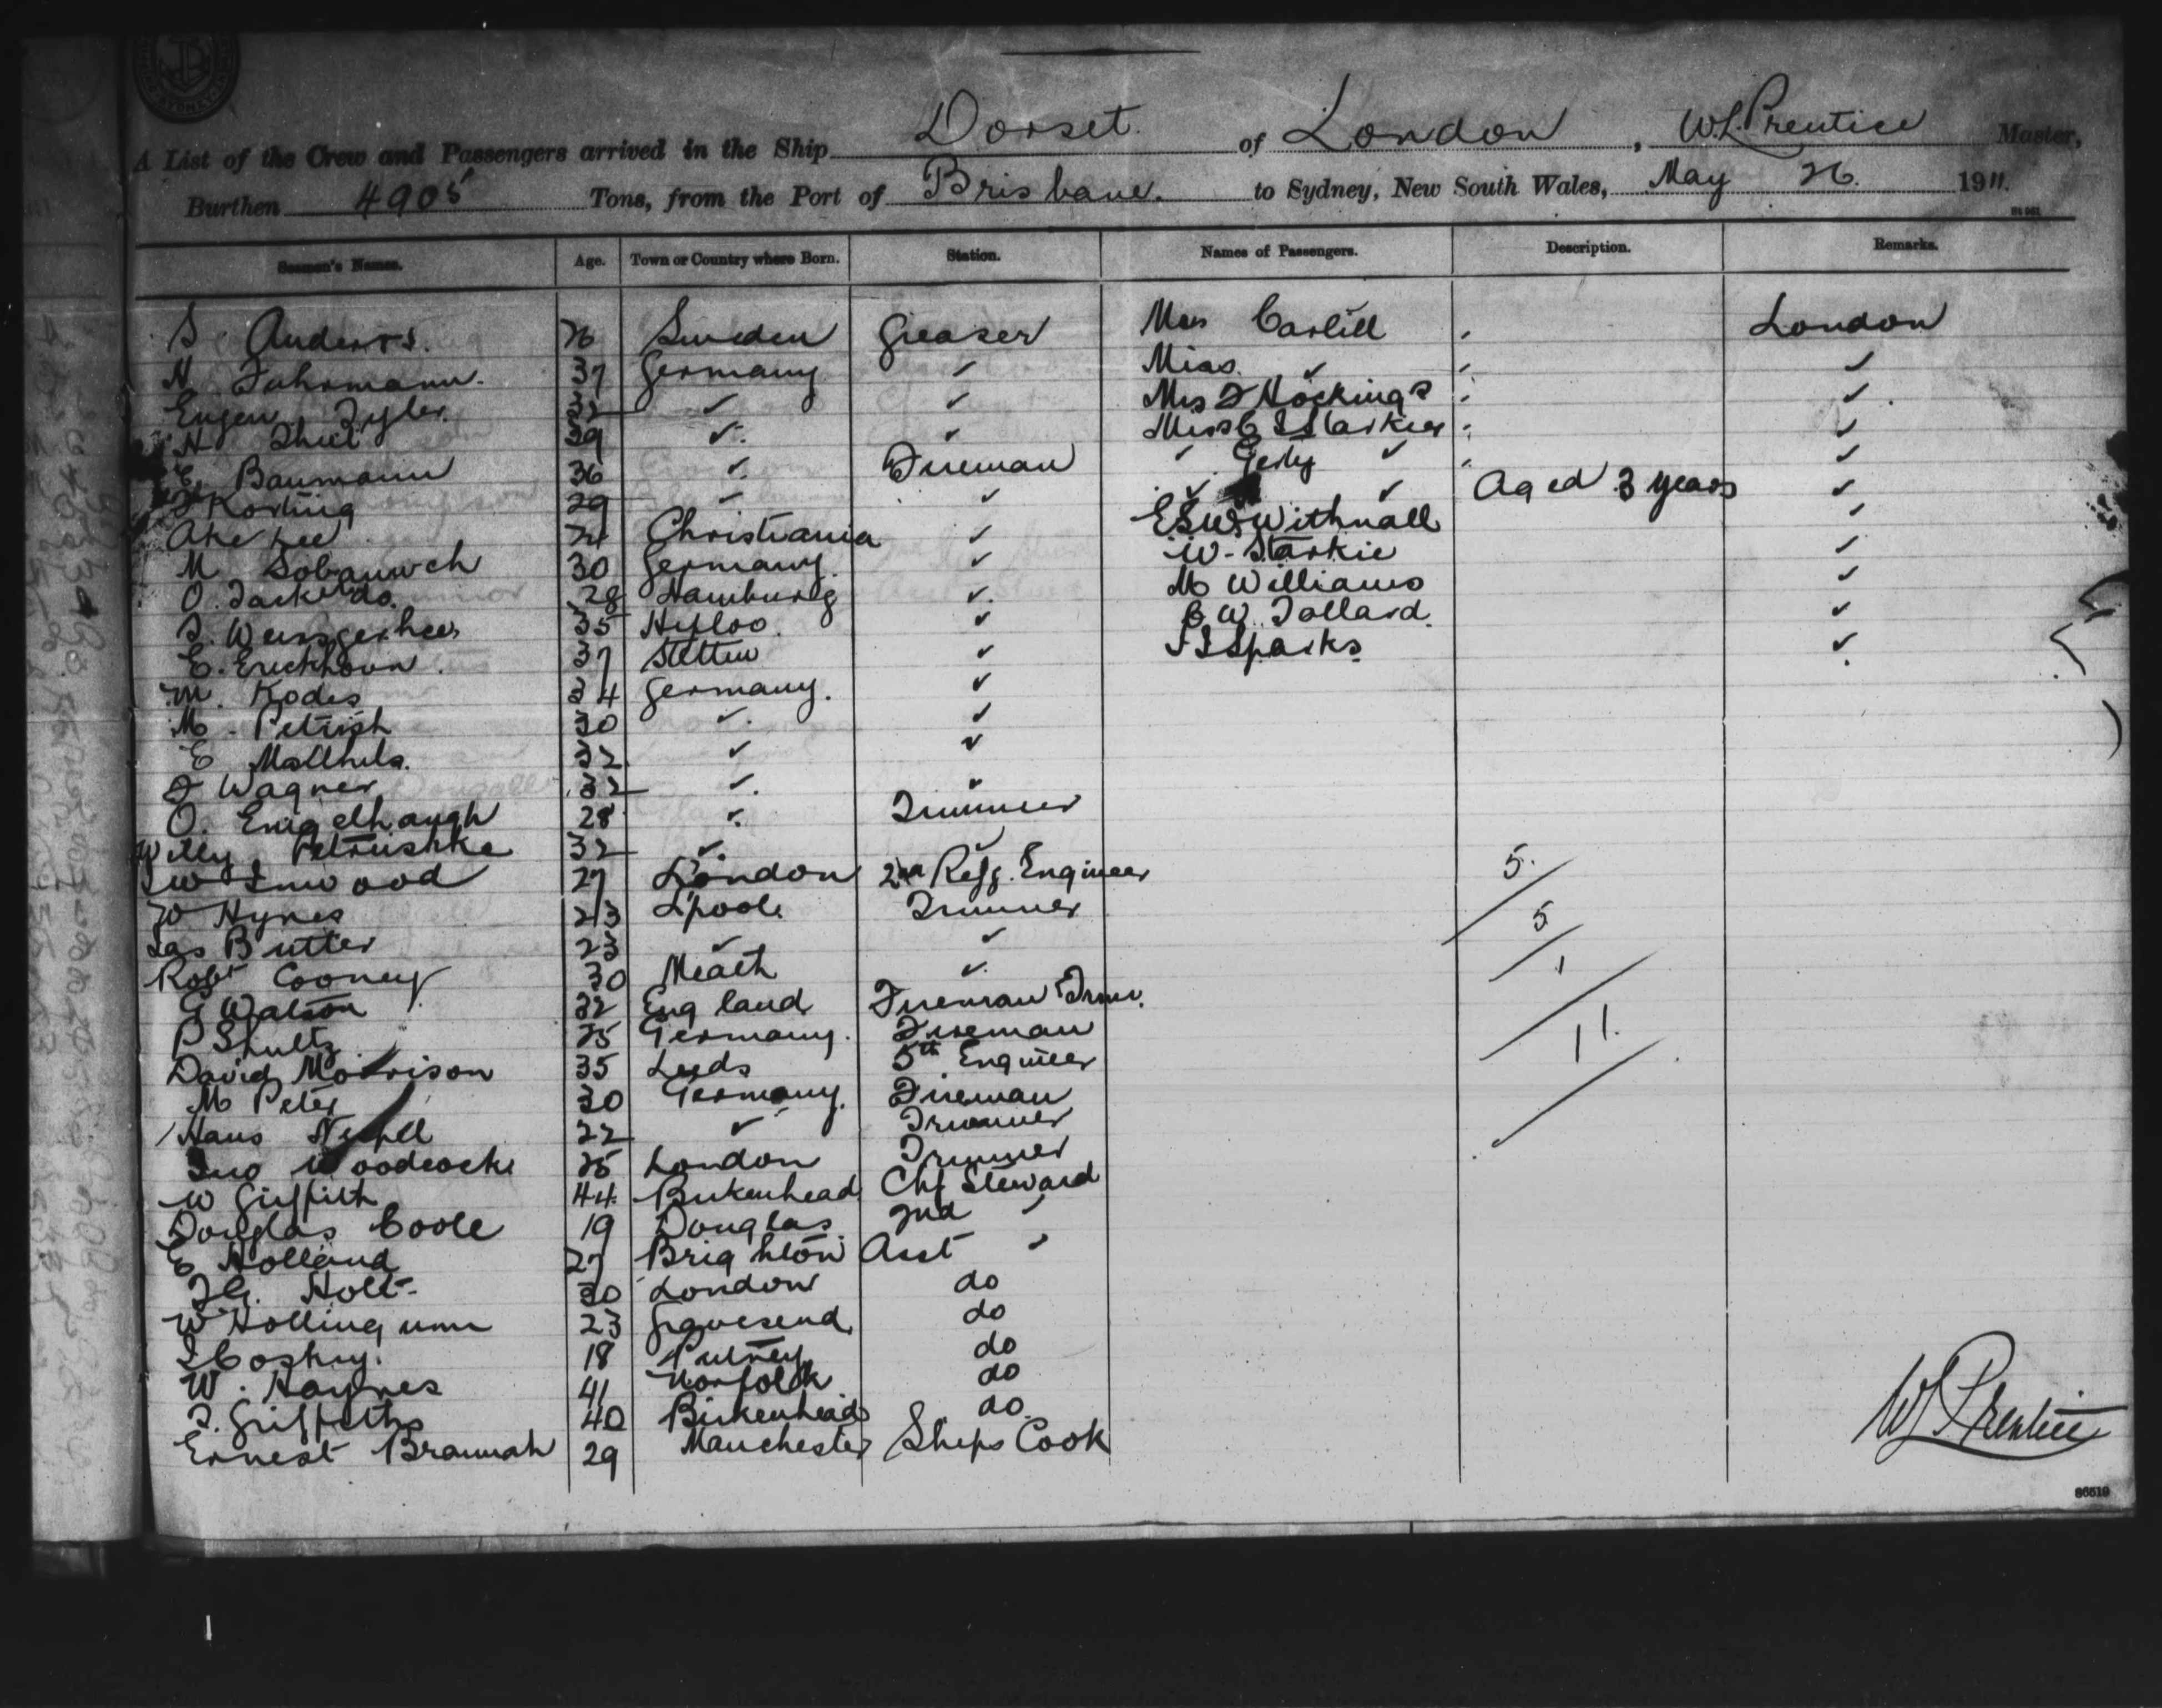 A List of the Crew and Passengers arrived in the Ship Dorset. of London, W.L. Prentice Master,
Burthen 4905 Tons, from the Port of Brisbane. to Sydney, New South Wales, May 26. 1911.
Seamen's Names. Age. Town or Country where Born. Station. Names of Passengers. Description. Remarks.
S Anders 26 Sweden Greaser Mrs Carlill London
H Fuhrmann. 37 Germany ✓ Miss ✓ ✓
Eugen Zyler 32 ✓ ✓ Mrs Hockings ✓
H Thiel 39 ✓ ✓ Miss Starkie ✓
E. Baumann 36 ✓ Fireman ✓ ✓ ✓
Korting 29 ✓ ✓ ✓ ✓ Aged 3 years ✓
Ake 24 Christiania ✓ Withnall ✓
M 30 Germany. ✓ W. Starkie ✓
O. 28 Hamburg ✓ M Williams ✓
35 ✓ W. Tollard. ✓
E. Erickhorn. 37 Stettin ✓ Sparks ✓
M. Kodes 34 Germany. ✓
M. Petrish 30 ✓ ✓
E 32 ✓ ✓
F Wagner 32 ✓ ✓
O. Engelhaugh 28 ✓ Trimmer
Willy Petrushke 32 ✓ ✓
W Inwood 27 London 2nd Refg. Engineer 5.
W Hynes 23 L'pool Trimmer 5
Jas Butter 23 ✓ ✓
Robt Cooney 30 Meath ✓ 1
G Watson 32 England Fireman Trmr.
P Shultz 25 Germany. Fireman 11.
David Morrison 35 Leeds 5th Engineer
M Peter 30 Germany. Fireman
Hans 22 ✓ Trimmer
Jno Woodcocke 25 London Trimmer
W Griffith 44 Birkenhead Chf Steward
Douglas Coole 19 Douglas 2nd ✓
E Holland 27 Brighton Asst ✓
Holt 30 London do
W Hollingum 23 Gravesend do
18 Putney do
W. Haynes 41 Norfolk do
Griffiths 40 Birkenhead do
Ernest Brannah 29 Manchester Ships Cook
W L Prentice
86519